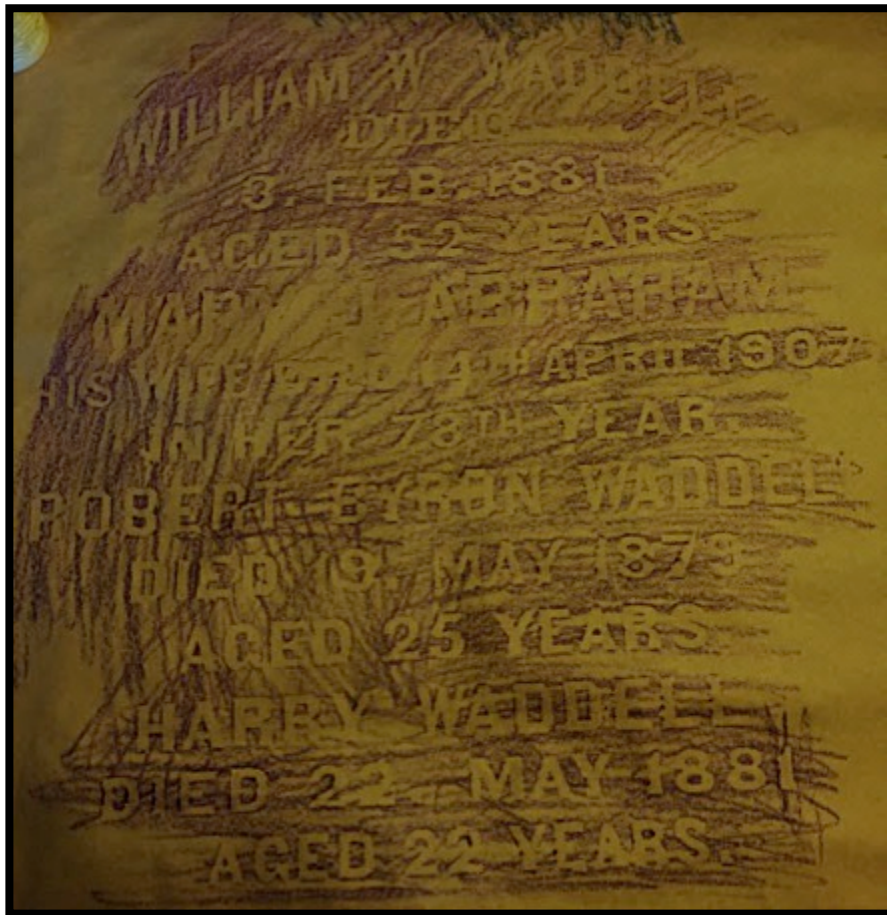 WILLIAM W. WADDELL
DIED
3. FEB. 1881
AGED 52 YEARS.
ABRAHAM
HIS WIFE DIED 14TH APRIL 1907
IN HER 78TH YEAR.
ROBERT BYRON WADDEL
DIED 19. MAY 1879
AGED 25 YEARS.
HARRY WADDELL
DIED 22. MAY 1881
AGED 22 YEARS.